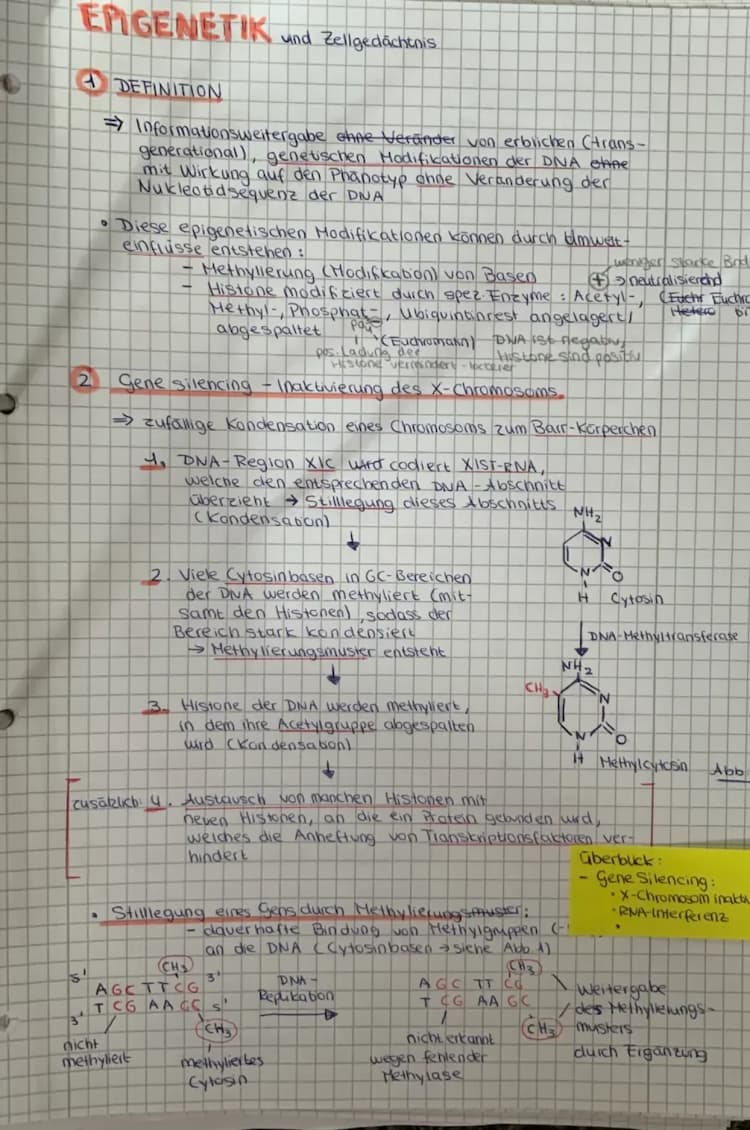 EPIGENETIK und Zellgedächtnis
1 DEFINITION
⇒ Informationsweitergabe ohne Veränder von erblichen (trans-
generational), genetischen Modifikationen der DNA ohne
mit Wirkung auf den Phänotyp ohne Veränderung der
Nukleotidsequenz der DNA
• Diese epigenetischen Modifikationen können durch Umwelt-
einflüsse entstehen:
weniger starke Bnd
- Methylierung (Modifikation) von Basen
+ ⇒ neutralisierend
- Histone modifiziert durch spez. Enzyme: Acetyl-,
(Euchr Euchro
Methyl-, Phosphat-, Ubiquintinrest angelagert/
Hetero
abgespaltet
(Euchromatin) DNA ist negativ,
pos. Ladung der Histone sind positiv
Histone vermindert - lockerer
2 Gene silencing - Inaktivierung des X-Chromosoms.
⇒ zufällige Kondensation eines Chromosoms zum Barr-Körperchen
1. DNA-Region XIC wird codiert XIST-RNA,
welche den entsprechenden DNA-Abschnitt
überzieht → Stilllegung dieses Abschnitts
(Kondensation)
NH₂
N
N
O
H Cytosin
↓
2. Viele Cytosinbasen in GC-Bereichen
der DNA werden methyliert (mit-
samt den Histonen), sodass der
Bereich stark kondensiert
→ Methylierungsmuster entsteht
DNA-Methyltransferase
↓
NH₂
CH₃
N
N
O
H Methylcytosin Abb
3. Histone der DNA werden methyliert,
in dem ihre Acetylgruppe abgespalten
wird (Kondensation)
↓
zusätzlich: 4. Austausch von manchen Histonen mit
neuen Histonen, an die ein Protein gebunden wird,
welches die Anheftung von Transkriptionsfaktoren ver-
hindert
Überblick:
- Gene Silencing:
• X-Chromosom inakti
- RNA-Interferenz
•
• Stilllegung eines Gens durch Methylierungsmuster:
- dauerhafte Bindung von Methylgruppen (-
an die DNA (Cytosinbasen → siehe Abb 1)
CH₃
5' AGC TT CG 3'
3' T CG AA GC 5'
CH₃
nicht
methyliert
methyliertes
Cytosin
DNA-
Replikation
CH₃
A GC TT CG
T CG AA GC
CH₃
nicht erkannt
wegen fehlender
Methylase
Weitergabe
des Methylierungs-
musters
durch Ergänzung